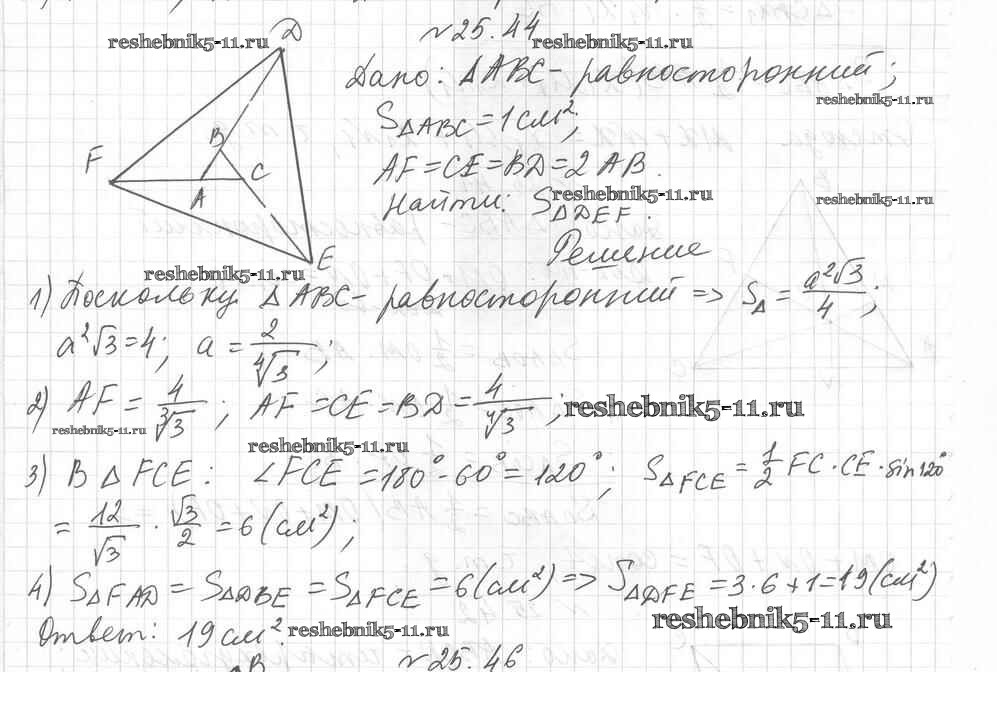 D
reshebnik5-11.ru
№25.44
reshebnik5-11.ru
Дано: ΔABC - равносторонний;
reshebnik5-11.ru
S△ABC = 1 см²;
B
F
C
A
AF = CE = BD = 2 AB.
Найти: S△DEF.
reshebnik5-11.ru
reshebnik5-11.ru
Решение
E
reshebnik5-11.ru
1) Поскольку ΔABC - равносторонний => S△ = a²√3/4;
a²√3 = 4; a = 2/∜3;
2) AF = 4/∛3; AF = CE = BD = 4/∜3;
reshebnik5-11.ru
reshebnik5-11.ru
reshebnik5-11.ru
3) В ΔFCE: ∠FCE = 180° - 60° = 120°; S△FCE = 1/2 FC · CE · sin120°
= 12/√3 · √3/2 = 6 (см²);
4) S△FAD = S△DBE = S△FCE = 6 (см²) => S△DFE = 3·6+1 = 19 (см²)
reshebnik5-11.ru
Ответ: 19 см².
reshebnik5-11.ru
B
№25.46